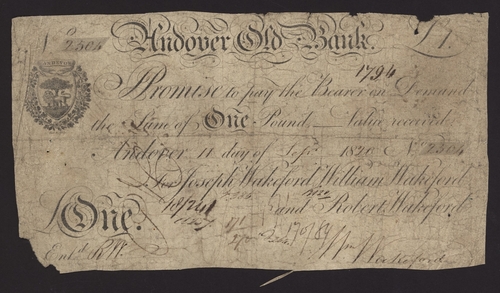 No. 2504 Andover Old Bank. £1.
1794
I Promise to pay the Bearer on Demand
the Sum of One Pound Value received.
Andover 11 day of Sepr. 182 No. 2504
For Joseph Wakeford William Wakeford
and Robert Wakeford.
One.
Entd. RW. Wm Wakeford